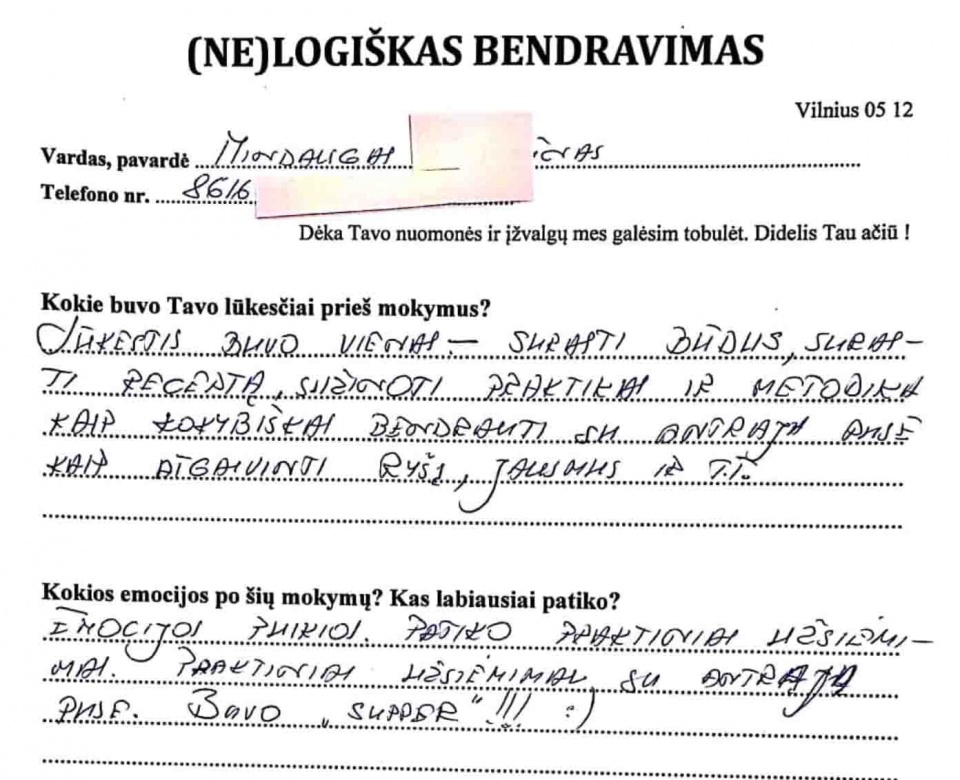 (NE)LOGIŠKAS BENDRAVIMAS
Vilnius 05 12
Vardas, pavardė MINDAUGAS
Telefono nr. 8616
Dėka Tavo nuomonės ir įžvalgų mes galėsim tobulėt. Didelis Tau ačiū !
Kokie buvo Tavo lūkesčiai prieš mokymus?
LŪKESTIS BUVO VIENAS – SURASTI BŪDUS, SURAS-
TI RECEPTĄ, SUŽINOTI PRAKTIKAS IR METODIKA
KAIP KOKYBIŠKAI BENDRAUTI SU ANTRĄJA PUSĖ
KAIP ATGAIVINTI RYŠĮ, JAUSMUS IR T.T.
Kokios emocijos po šių mokymų? Kas labiausiai patiko?
EMOCIJOS PUIKIOS. PATIKO PRAKTINIAI UŽSIĖMI-
MAI. PRAKTINIAI UŽSIĖMIMAI SU ANTRĄJA
PUSE. BUVO „SUPPER" !!! :)